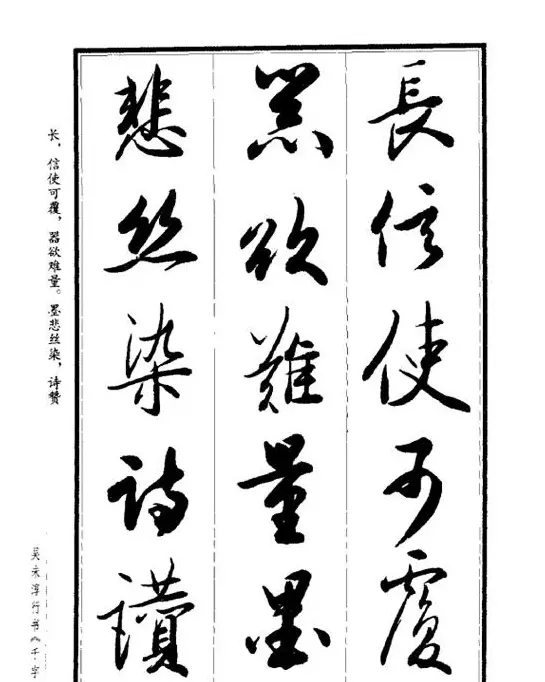 長信使可覆
器欲難量墨
悲絲染詩讃
长，信使可覆，器欲难量。墨悲丝染，诗赞
吴未淳行书《千字